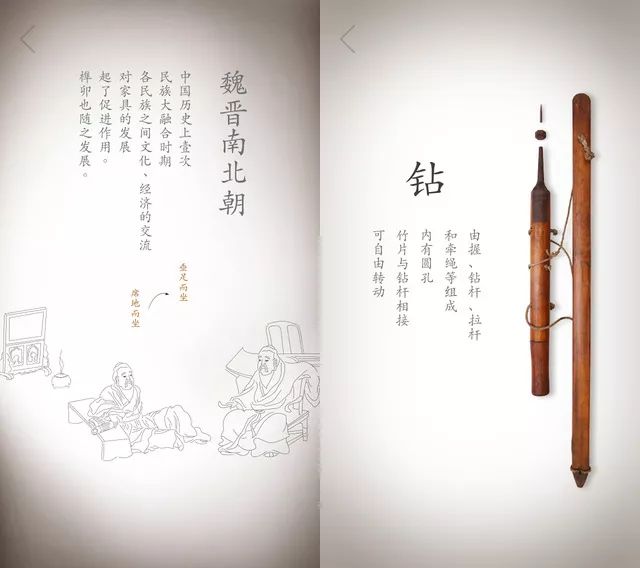 魏晋南北朝
中国历史上壹次
民族大融合时期
各民族之间文化、经济的交流
对家具的发展
起了促进作用。
榫卯也随之发展。
垂足而坐
席地而坐
钻
由握、钻杆、拉杆
和牵绳等组成
内有圆孔
竹片与钻杆相接
可自由转动